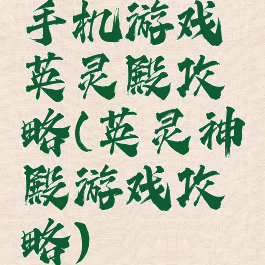 手机游戏
英灵殿攻
略(英灵神
殿游戏攻
略)